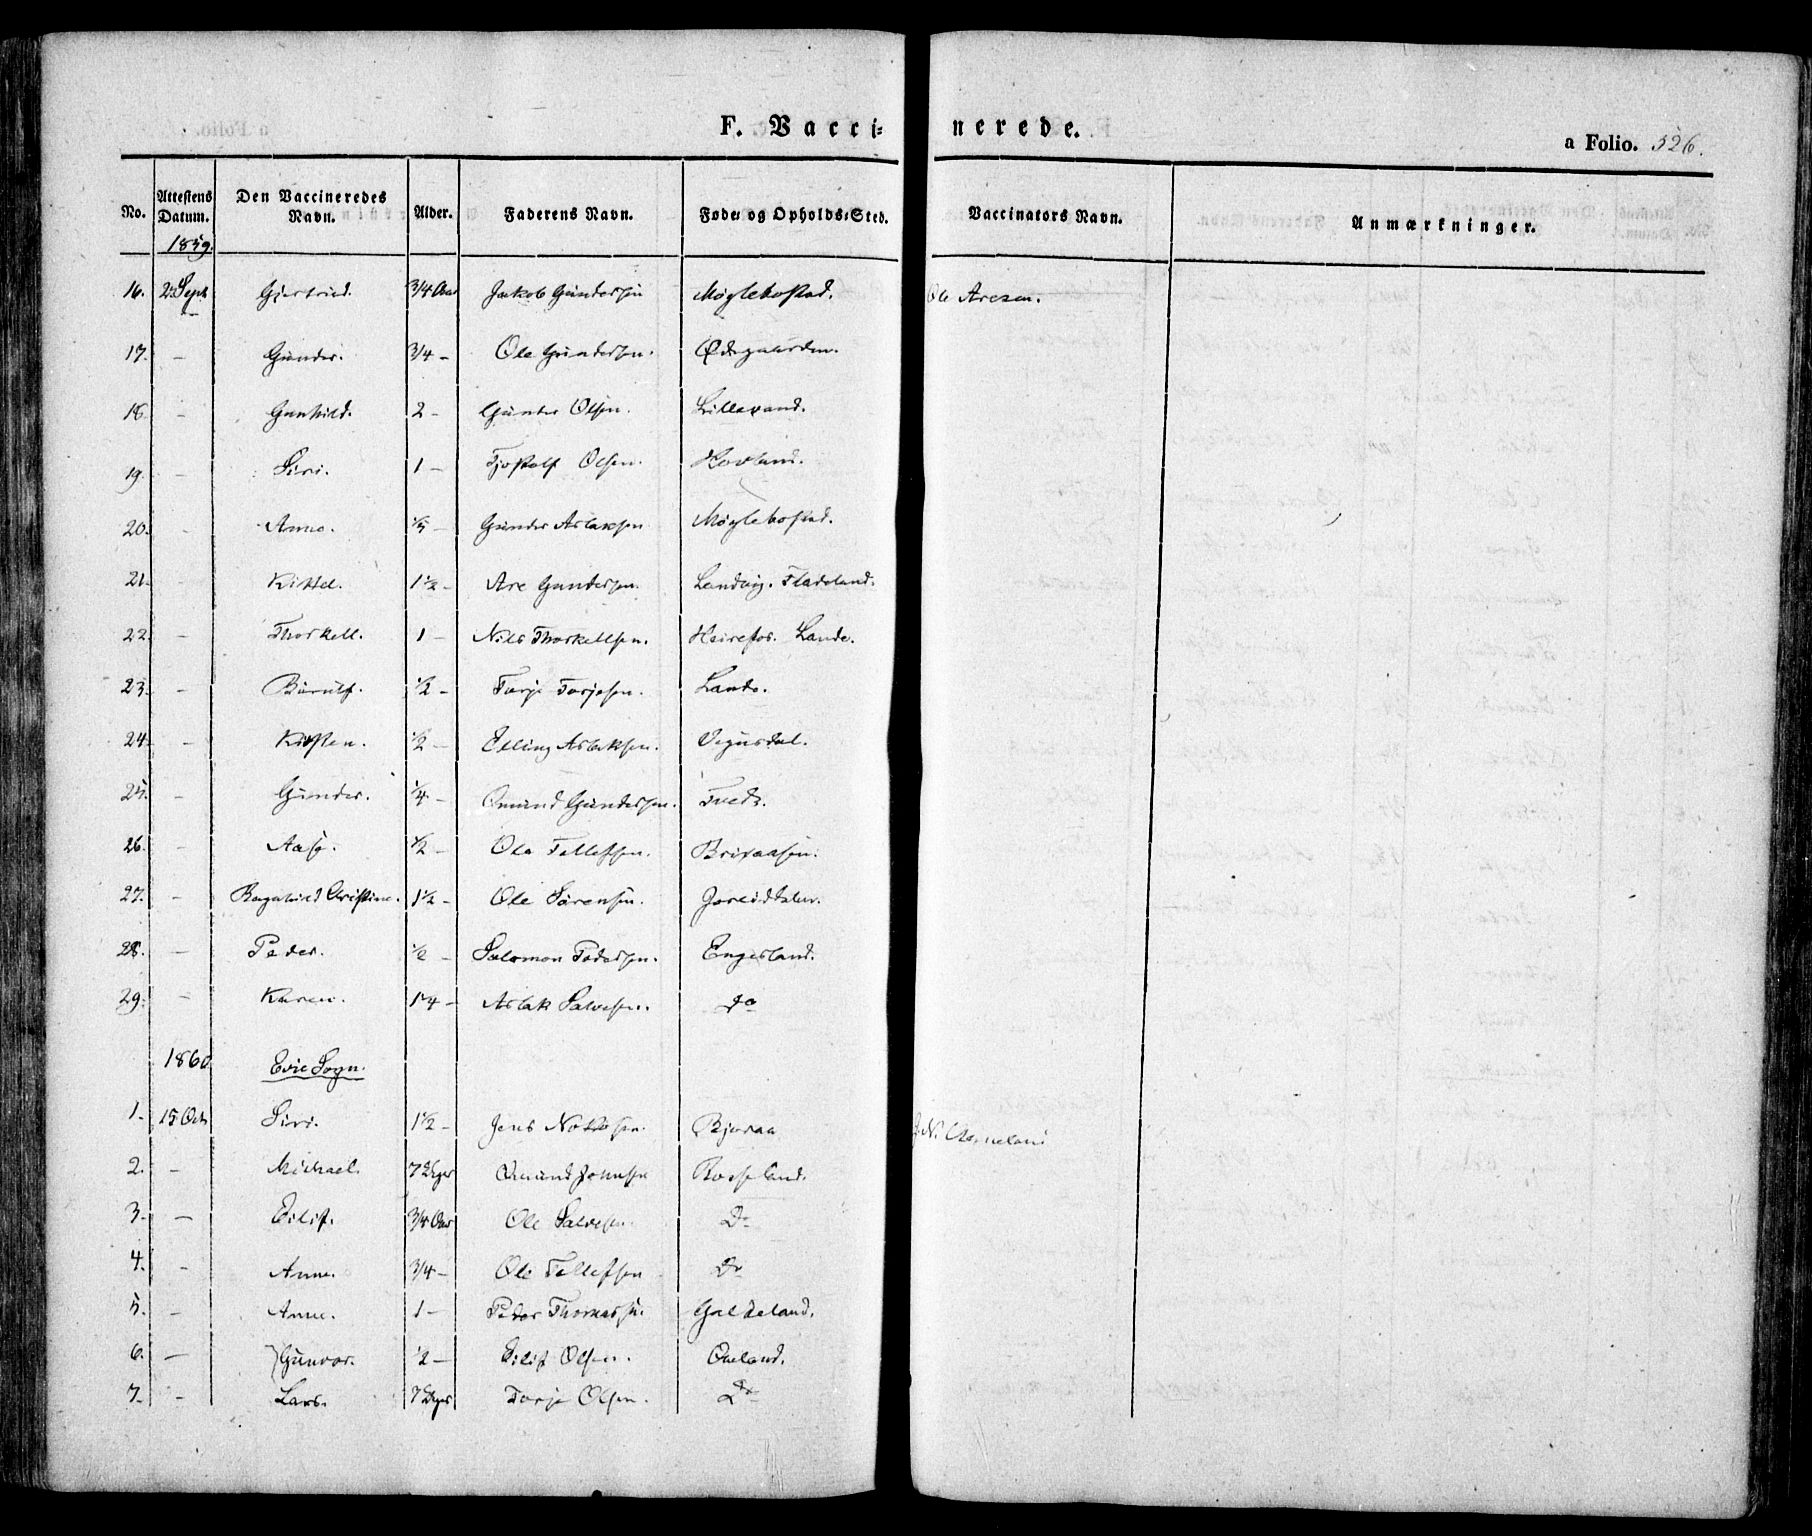 F. Vaccinerede.
a Folio. 526.
No. Attestens Datum. Den Vaccineredes Navn. Alder. Faderens Navn. Føde- og Opholds-Sted. Vaccinators Navn. Anmærkninger.
1859.
16. 2 Sept Gjertrud. 3/4 Aar Jakob Gundersen Møglebostad. Ole Aresen.
17. – Gunder. 3/4 – Ole Gundersen. Ødegaarden.
18. – Gunhild. 2 – Gunder Olsen. Lillevand.
19. – Siri. 1 – Tjostolf Olsen. Hovland.
20. – Anne. Gunder Aslaksen Møglebostad.
21. – Kittel. 1 1/2 – Are Gundersen. Landvig. Fladeland.
22. – Thorkell. 1 – Nils Thorkellsen. Heirefos. Lande.
23. – 1/2 – Tarje Tarjesen. Lande.
24. – Kirsten. 1/2 – Elling Aslaksen. Vegusdal.
25. – Gunder. 1/4 – Omund Gundersen. Tvede.
26. – Aase. 1/2 – Ole Tellefsen.
27. – Ragnhild Christine. 1 1/2 – Ole Sørensen.
28. – Peder. 1/2 – Salomon Pedersen. Engesland.
29. – Karen. 1 1/4 – Aslak Salvesen. do
1860 Evje Sogn.
1. 15 Oct Siri. 1 1/2 – Jens Bjoraa
2. – Michael. 7 Uger Omund Jonsen Rosseland.
3. – Eilif. 3/4 Aar Ole Salvesen. Do
4. – Anne. 3/4 – Ole Tellefsen Do
5. – Anne. 1 – Peder Thomassen Galteland.
6. – Gunvor. 1/2 – Eilif Olsen. Omland.
7. – Lars. 7 Uger Tarje Olsen. Do